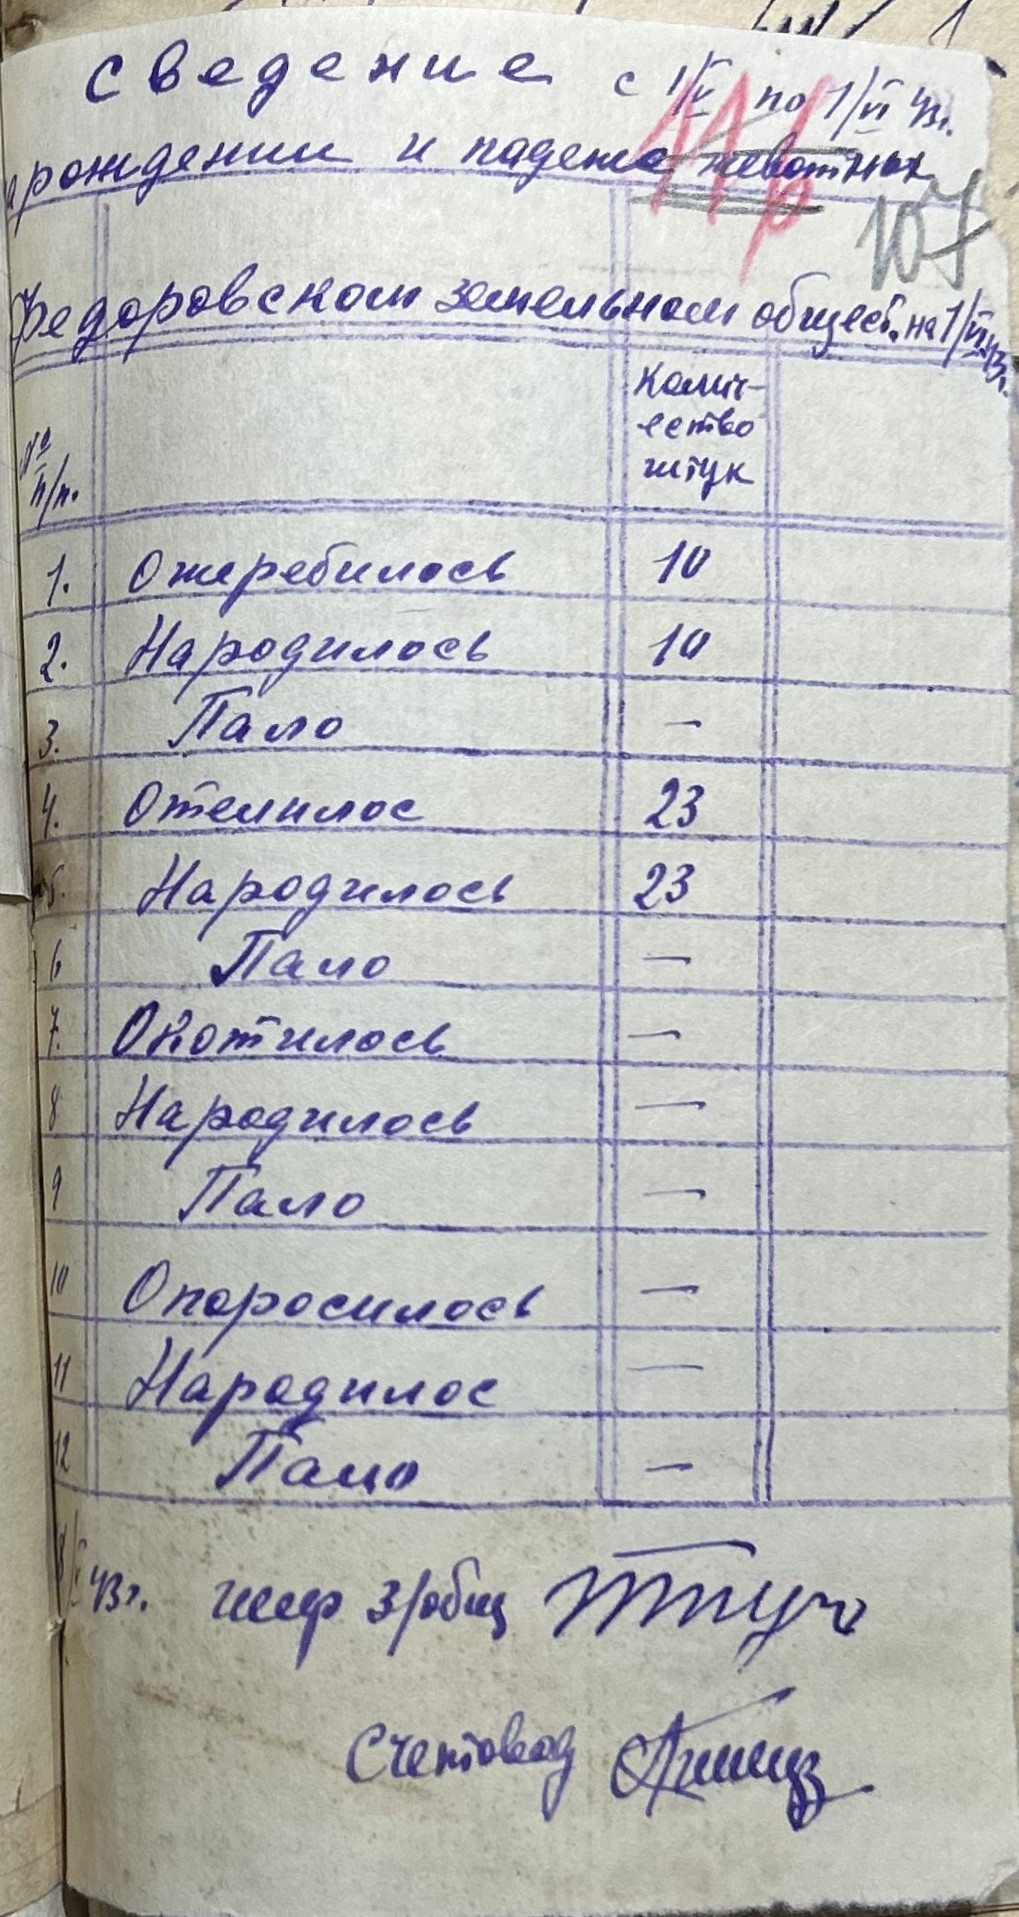 сведение с 1/V по 1/VI 43г.
арождении и падеже животных
107
Федоровском земельном общест. на 1/VI 43г.
№ п/п. Количество штук
1. Ожеребилось 10
2. Народилось 10
3. Пало —
4. Отелилос 23
5. Народилось 23
6 Пало —
7. Окотилось —
8 Народилось —
9 Пало —
10 Опоросилось —
11 Народилос —
12 Пало —
43г. шеф з/общ
Счетовод